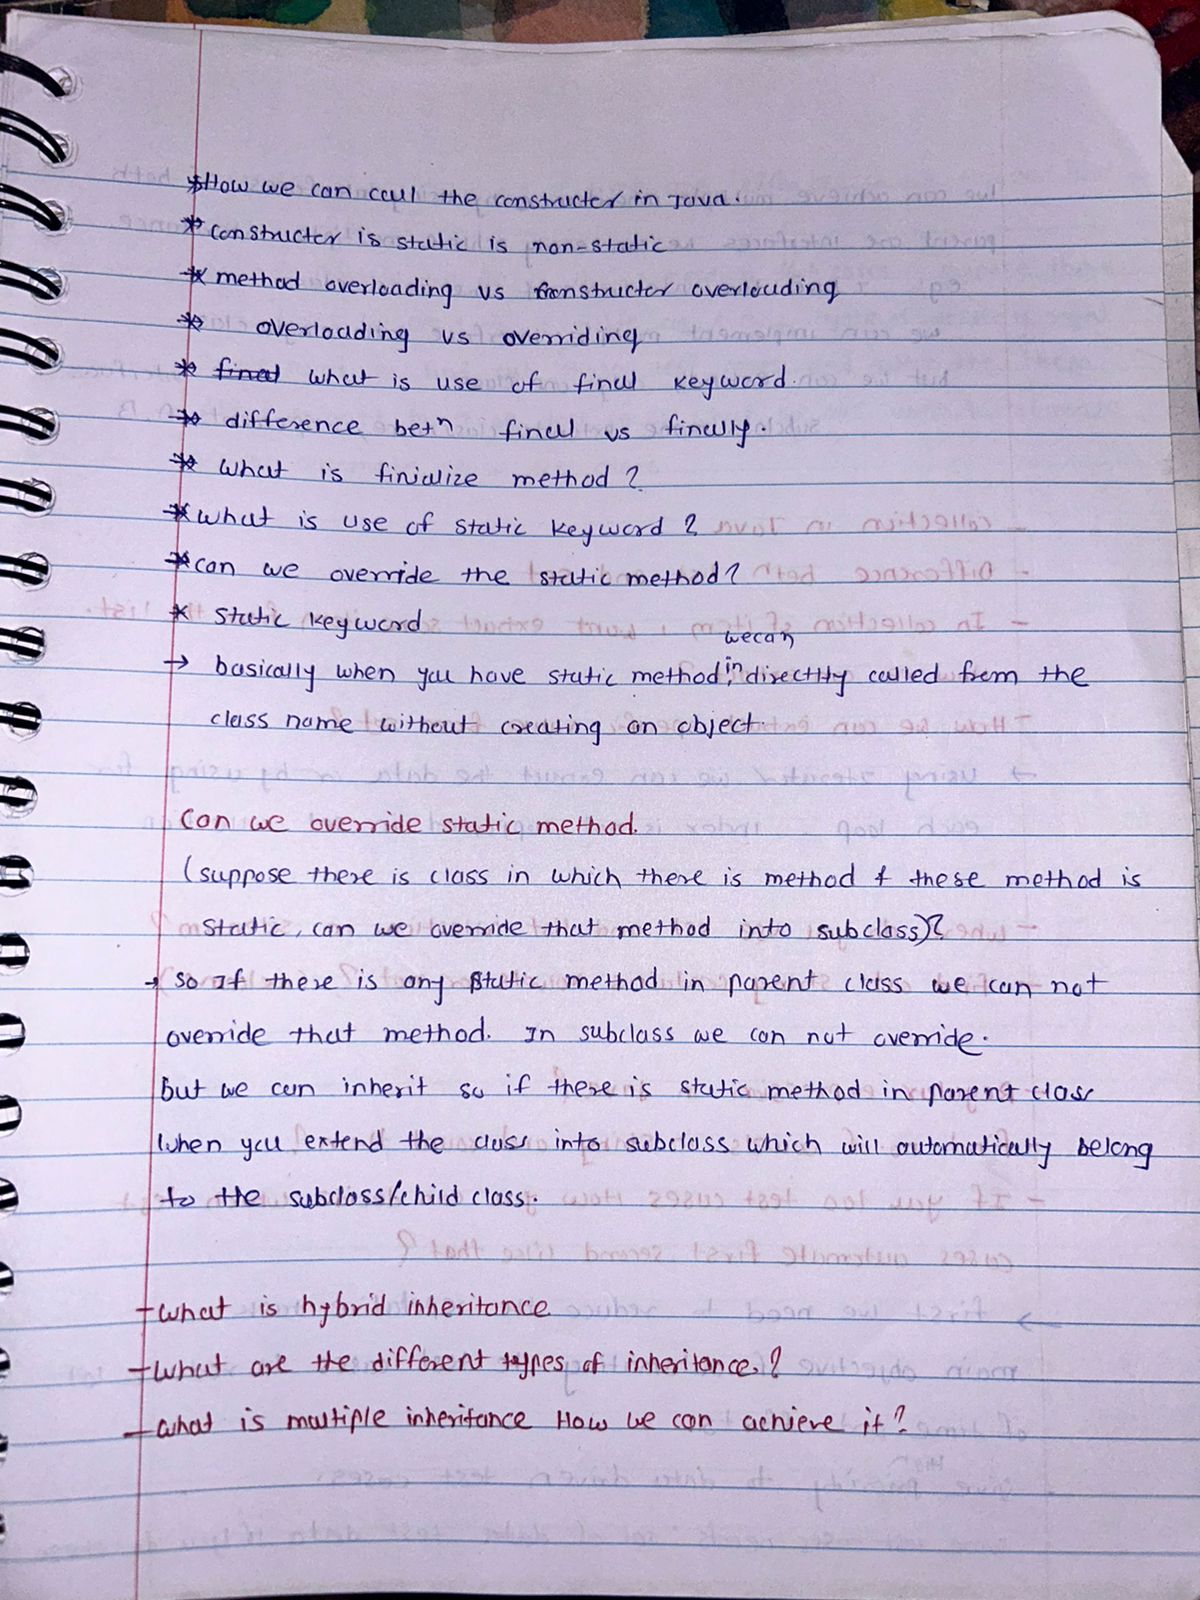 * How we can call the constructer in Java.
* constructer is static is non-static
* method overloading vs constructor overloading
* overloading vs overriding
* final what is use of final keyword.
* difference betn final vs finally.
* what is finialize method ?
* what is use of static keyword ?
* can we override the static method?
* static keyword
we can
→ basically when you have static method, in directlty called from the
class name without creating an object.
Can we override static method.
(suppose there is class in which there is method & these method is
static, can we override that method into subclass)?
→ so If there is any static method in parent class we can not
override that method. In subclass we can not override.
but we can inherit so if there is static method in parent class
when you extend the class into subclass which will automatically belong
to the subclass/child class.
- what is hybrid inheritance
- what are the different types of inheritance.?
- what is multiple inheritance How we can achieve it?